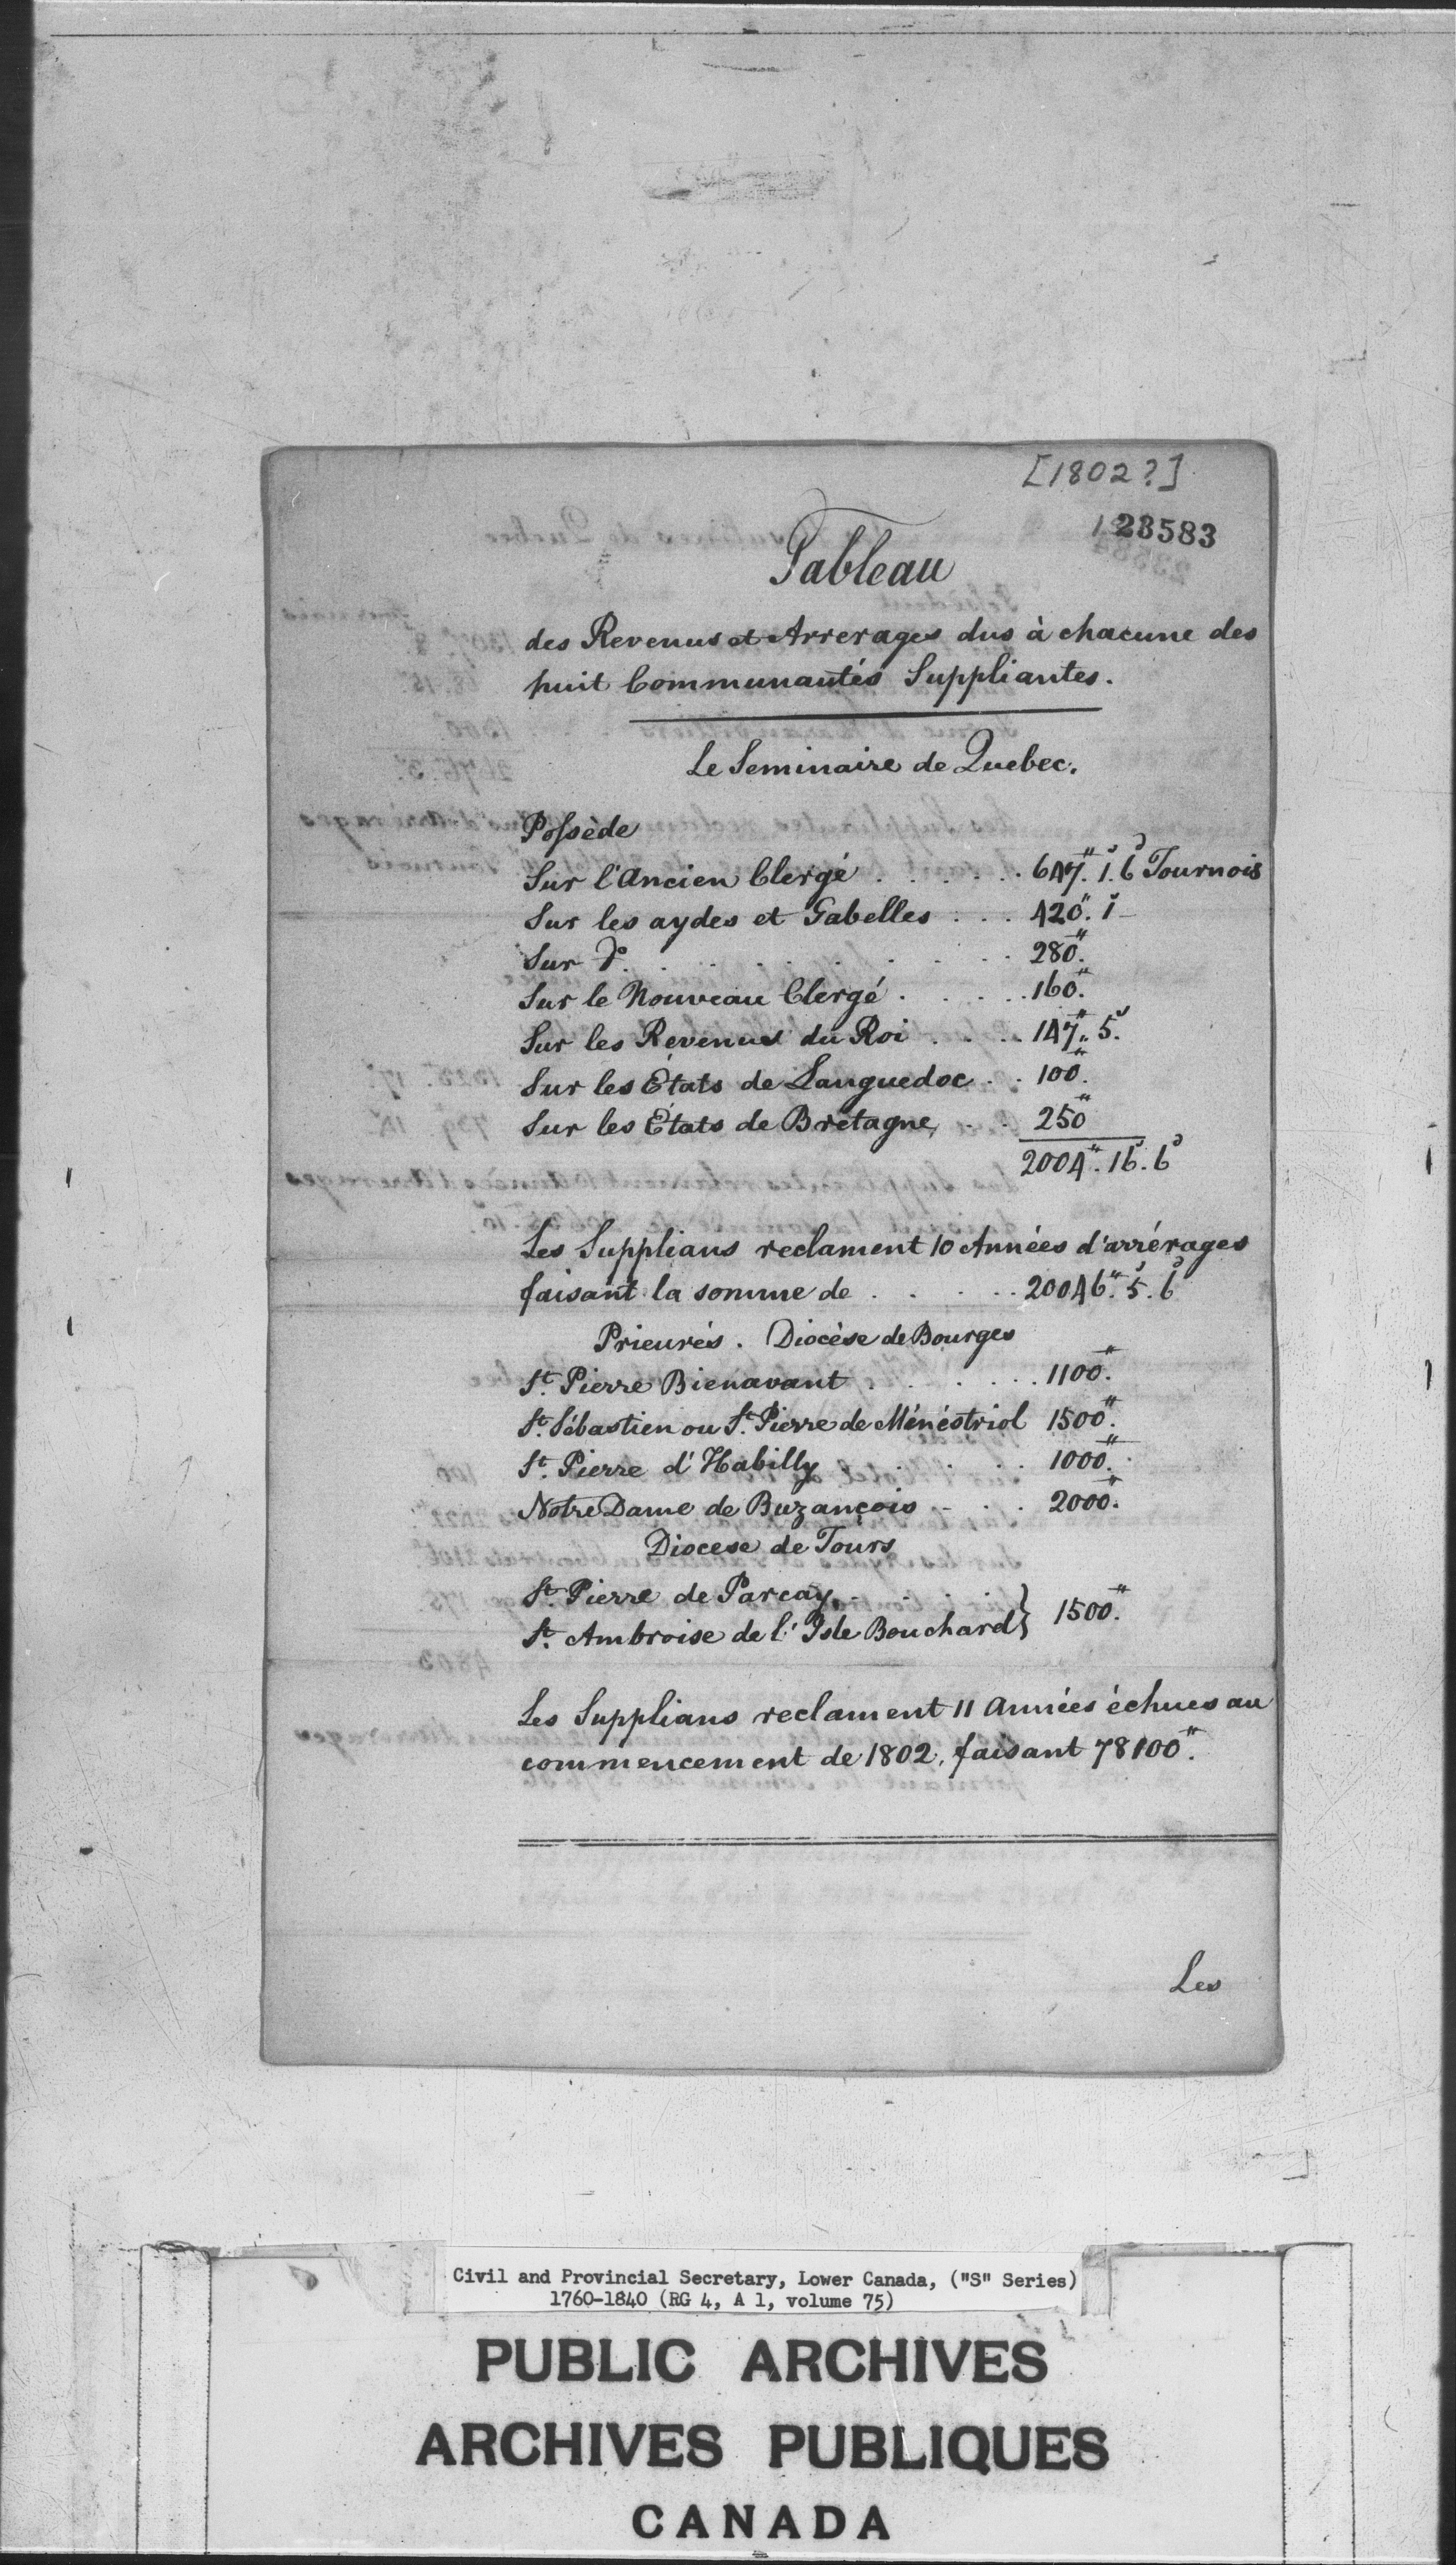 [1802?]
23583
Tableau
des Revenus et Arrerages dus à chacune des
huit Communautés Suppliantes.
Le Seminaire de Quebec.
Possède
Sur l'Ancien Clergé . . . . . 647.# 1.s 6d Tournois
Sur les aydes et Gabelles . . . 420.# 1s
Sur do. . . . . . . . . 280.#
Sur le Nouveau Clergé . . . . . 160.#
Sur les Revenus du Roi . . . . 147.# 5.s
Sur les États de Languedoc . . 100.#
Sur les États de Bretagne . . 250#
2004.# 16.s 6d
Les Supplians reclament 10 Années d'arrérages
faisant la somme de . . . . . 20046.# 5.s 6d
Prieurés. Diocèse de Bourges
St. Pierre Bienavant . . . . . 1100.#
St. Sébastien ou St. Pierre de Ménéstriol 1500.#
St. Pierre d'Habilly . . . . 1000.#
Notre Dame de Buzançois - . . 2000.#
Diocese de Tours
St. Pierre de Parcay. . . . .
St. Ambroise de l'Isle Bouchard } 1500.#
Les Supplians reclament 11 Années échues au
commencement de 1802, faisant 78100.#
Les
Civil and Provincial Secretary, Lower Canada, ("S" Series)
1760-1840 (RG 4, A 1, volume 75)
PUBLIC ARCHIVES
ARCHIVES PUBLIQUES
CANADA